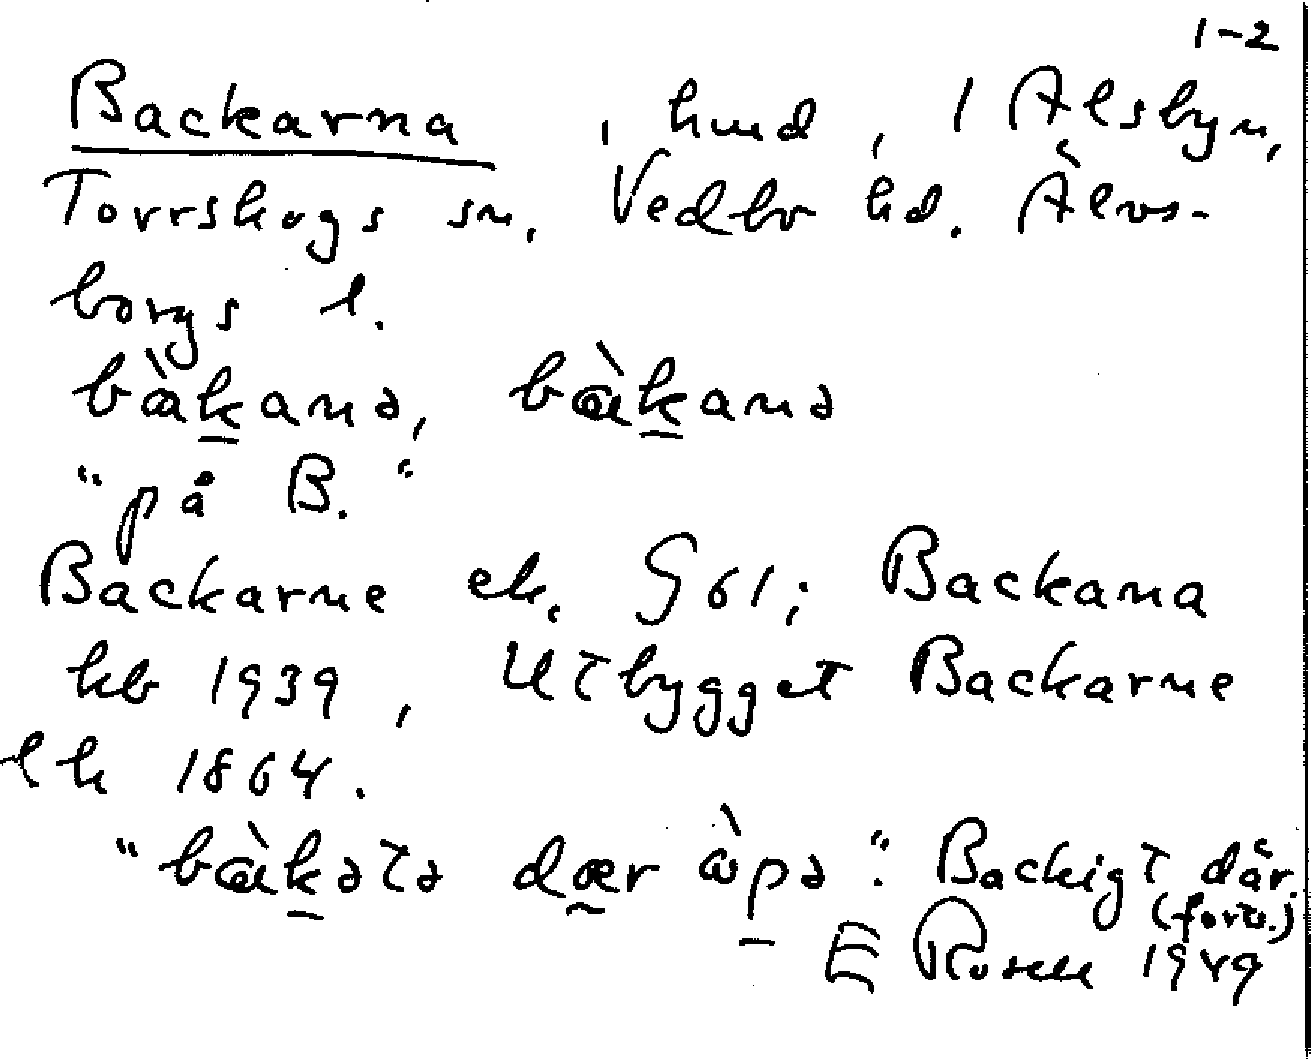 1-2
Backarna, hmd, 1 Ålsbyn,
Torrskogs sn, Vedbo hd. Älvs-
borgs l.
bàkanə, bàkanə
"på B."
Backarne ek. G61; Backana
kb 1939, Utbygget Backarne
lk 1864.
"bàkətə dær òpə". Backigt där.
(forts.)
E Rosell 1949